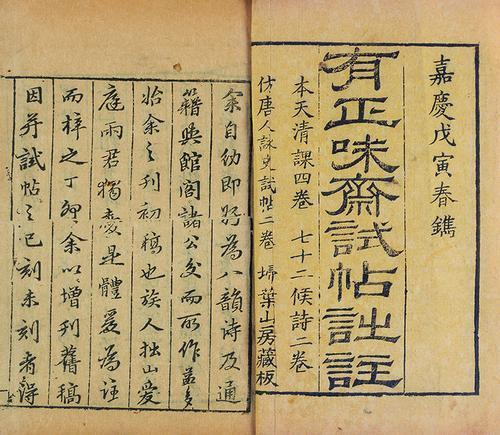 嘉慶戊寅春鐫
有正味齋試帖詳註
本天清課四卷 七十二候詩二卷
仿唐人詠史試帖二卷 掃葉山房藏板
余自幼即好為八韻詩及通
籍與館閣諸公交而所作益多
始余之刊初稿也族人拙山愛
庭雨君獨愛是體爰為註
而梓之丁卯余以增刊舊稿
因并試帖之已刻未刻者得